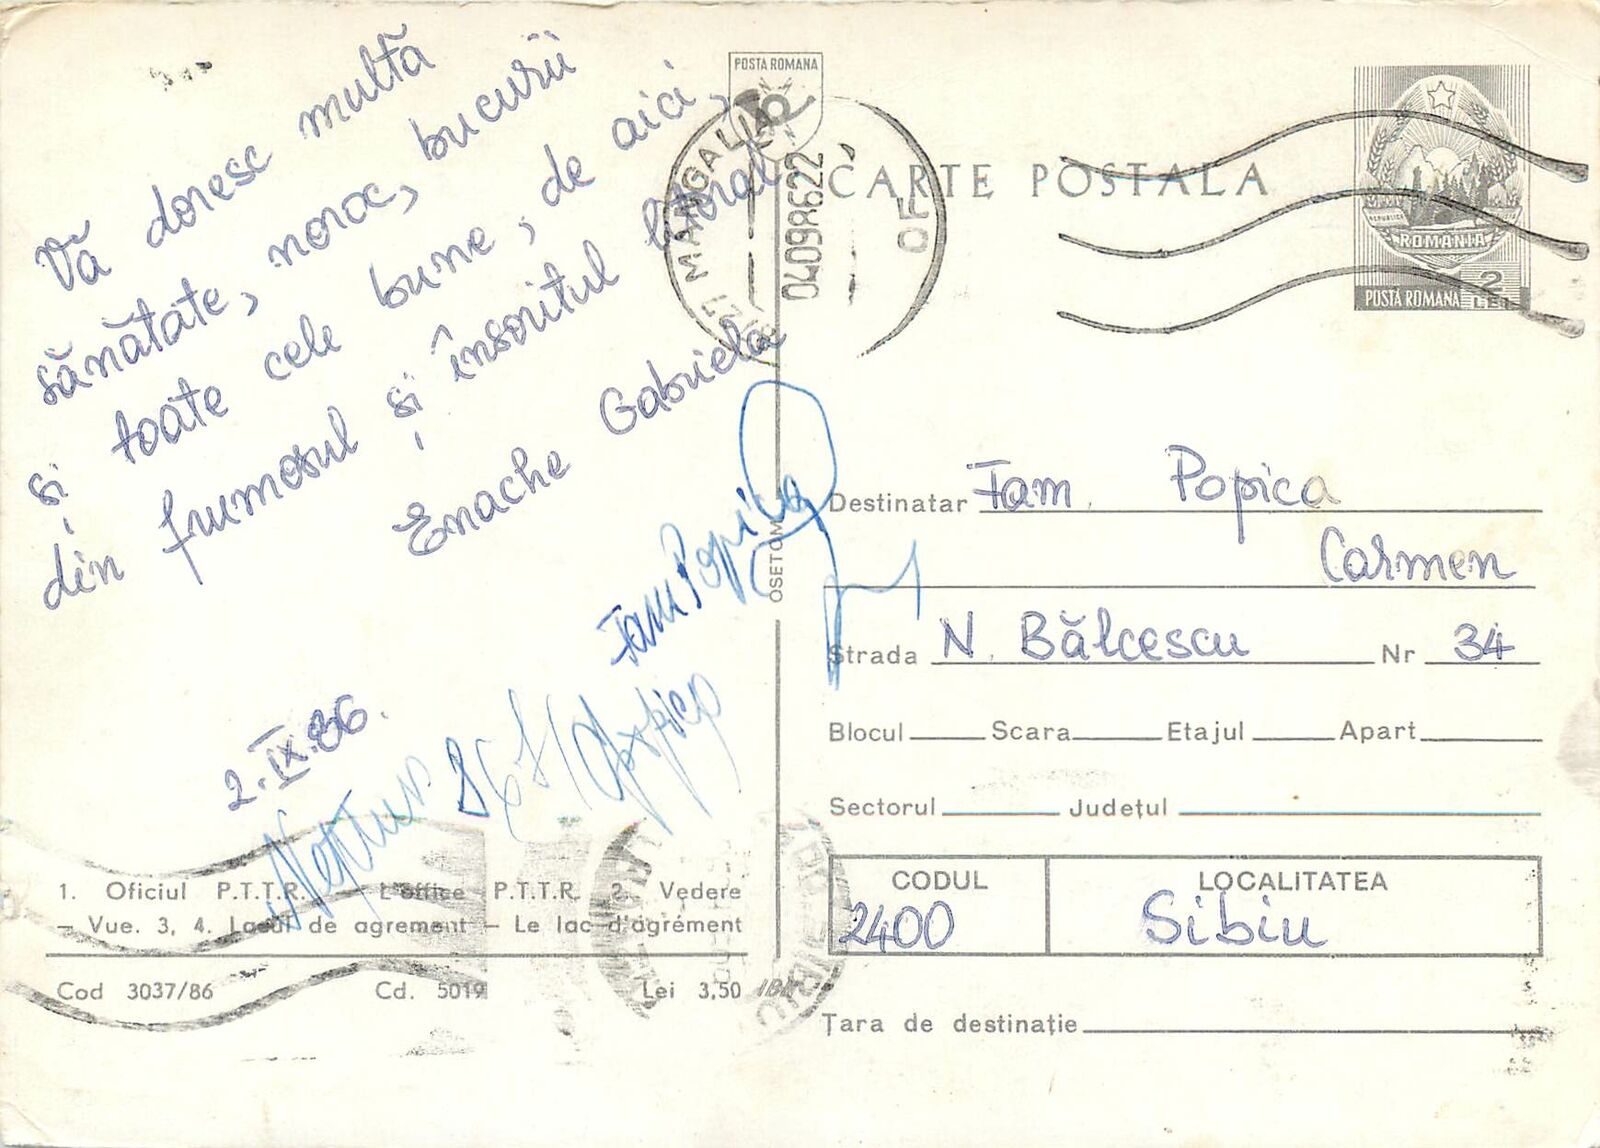 Vă doresc multă
sănătate, noroc, bucurii
și toate cele bune, de aici,
din frumosul și însoritul litoral
Enache Gabriela
2.IX.86.
Fam Popica
Neptun 86
1. Oficiul P.T.T.R. — L'office P.T.T.R. 2. Vedere
— Vue. 3, 4. Lacul de agrement — Le lac d'agrément
Cod 3037/86 Cd. 5019 Lei 3,50
POSTA ROMANA
MANGALIA
04098622
OF
CARTE POSTALA
REPUBLICA
ROMANIA
2
LEI
POSTA ROMANA
Destinatar Fam. Popica
Carmen
Strada N. Bălcescu Nr 34
Blocul Scara Etajul Apart.
Sectorul Județul
CODUL LOCALITATEA
2400 Sibiu
Țara de destinație